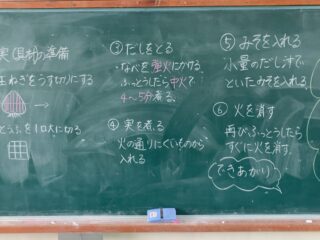 実(具材)の準備
玉ねぎをうす切りにする
とうふを1口大に切る
③ だしをとる
なべを強火にかける
ふっとうしたら中火で
4〜5分煮る。
④ 実を煮る
火の通りにくいものから
入れる
⑤ みそを入れる
少量のだし汁で
といたみそを入れる
⑥ 火を消す
再びふっとうしたら
すぐに火を消す。
できあがり